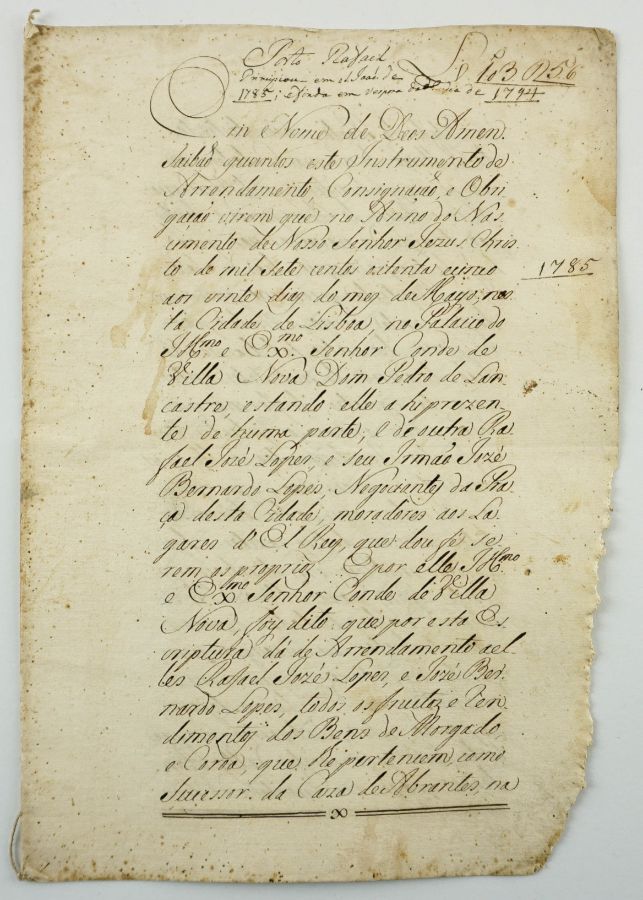 Porto Rafael
Lº 103 N 56
Principiou em o Iaño. de
1785; e finda em vespora do dia de 1794
Em Nome de Deos Amen.
Saibaõ quantos este Instrumento de
Arrendamento, Consignaçaõ, e Obri
gaçaõ virem que no Anno do Nas
cimento de Nosso Senhor Jezus Chris
to de mil sete centos oitenta e cinco
1785
aos vinte dias do mez de Mayo, nes
ta Cidade de Lisboa, no Palacio do
Illmo. e Exmo. Senhor Conde de
Villa Nova Dom Pedro de Lan
castre, estando elle ahi prezen
te de huma parte, e de outra Ra
fael Jozé Lopes, e seu Irmaõ Jozé
Bernardo Lopes, Negociantes da Pra
ça desta Cidade, moradores aos La
gares d'El Rey, que dou fé se
rem os proprios. E por elle Illmo
e Exmo Senhor Conde de Villa
Nova, foy dito: que por esta Es
criptura dá de Arrendamento ael
les Rafael Jozé Lopes, e Jozé Ber
nardo Lopes, todos os fructos e ren
dimentos dos Bens de Morgado,
e Coroa, que lhe pertencem, como
Sucessor da Caza de Abrantes, na